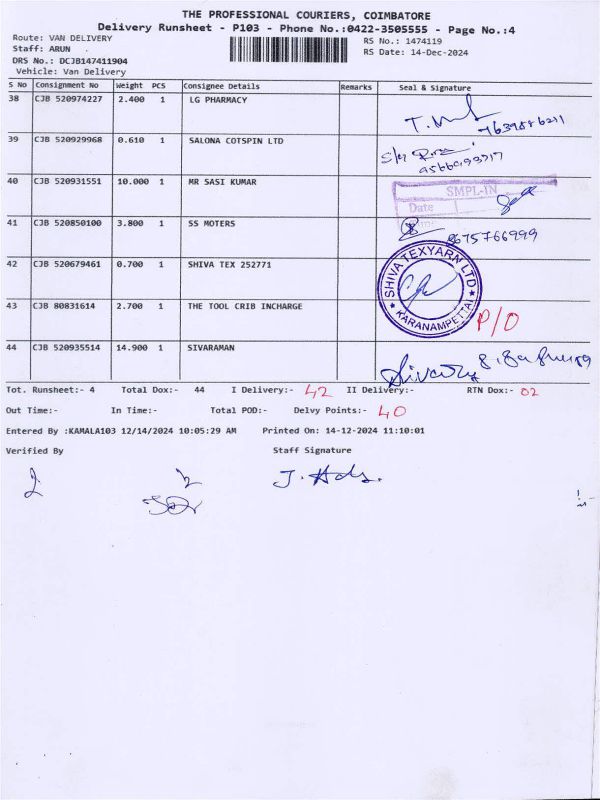 THE PROFESSIONAL COURIERS, COIMBATORE
Delivery Runsheet - P103 - Phone No.:0422-3505555 - Page No.:4
Route: VAN DELIVERY
RS No.: 1474119
Staff: ARUN .
RS Date: 14-Dec-2024
DRS No.: DCJB147411904
Vehicle: Van Delivery
S No Consignment No Weight PCS Consignee Details Remarks Seal & Signature
38 CJB 520974227 2.400 1 LG PHARMACY
39 CJB 520929968 0.610 1 SALONA COTSPIN LTD
40 CJB 520931551 10.000 1 MR SASI KUMAR
SMPL-IN
Date
41 CJB 520850100 3.800 1 SS MOTERS
8675766999
42 CJB 520679461 0.700 1 SHIVA TEX 252771
SHIVA TEXYARN LTD
KARANAMPETTAI
43 CJB 80831614 2.700 1 THE TOOL CRIB INCHARGE
P/O
44 CJB 520935514 14.900 1 SIVARAMAN
Tot. Runsheet:- 4 Total Dox:- 44 I Delivery:- 42 II Delivery:- RTN Dox:- 02
Out Time:- In Time:- Total POD:- Delvy Points:- 40
Entered By :KAMALA103 12/14/2024 10:05:29 AM Printed On: 14-12-2024 11:10:01
Verified By Staff Signature